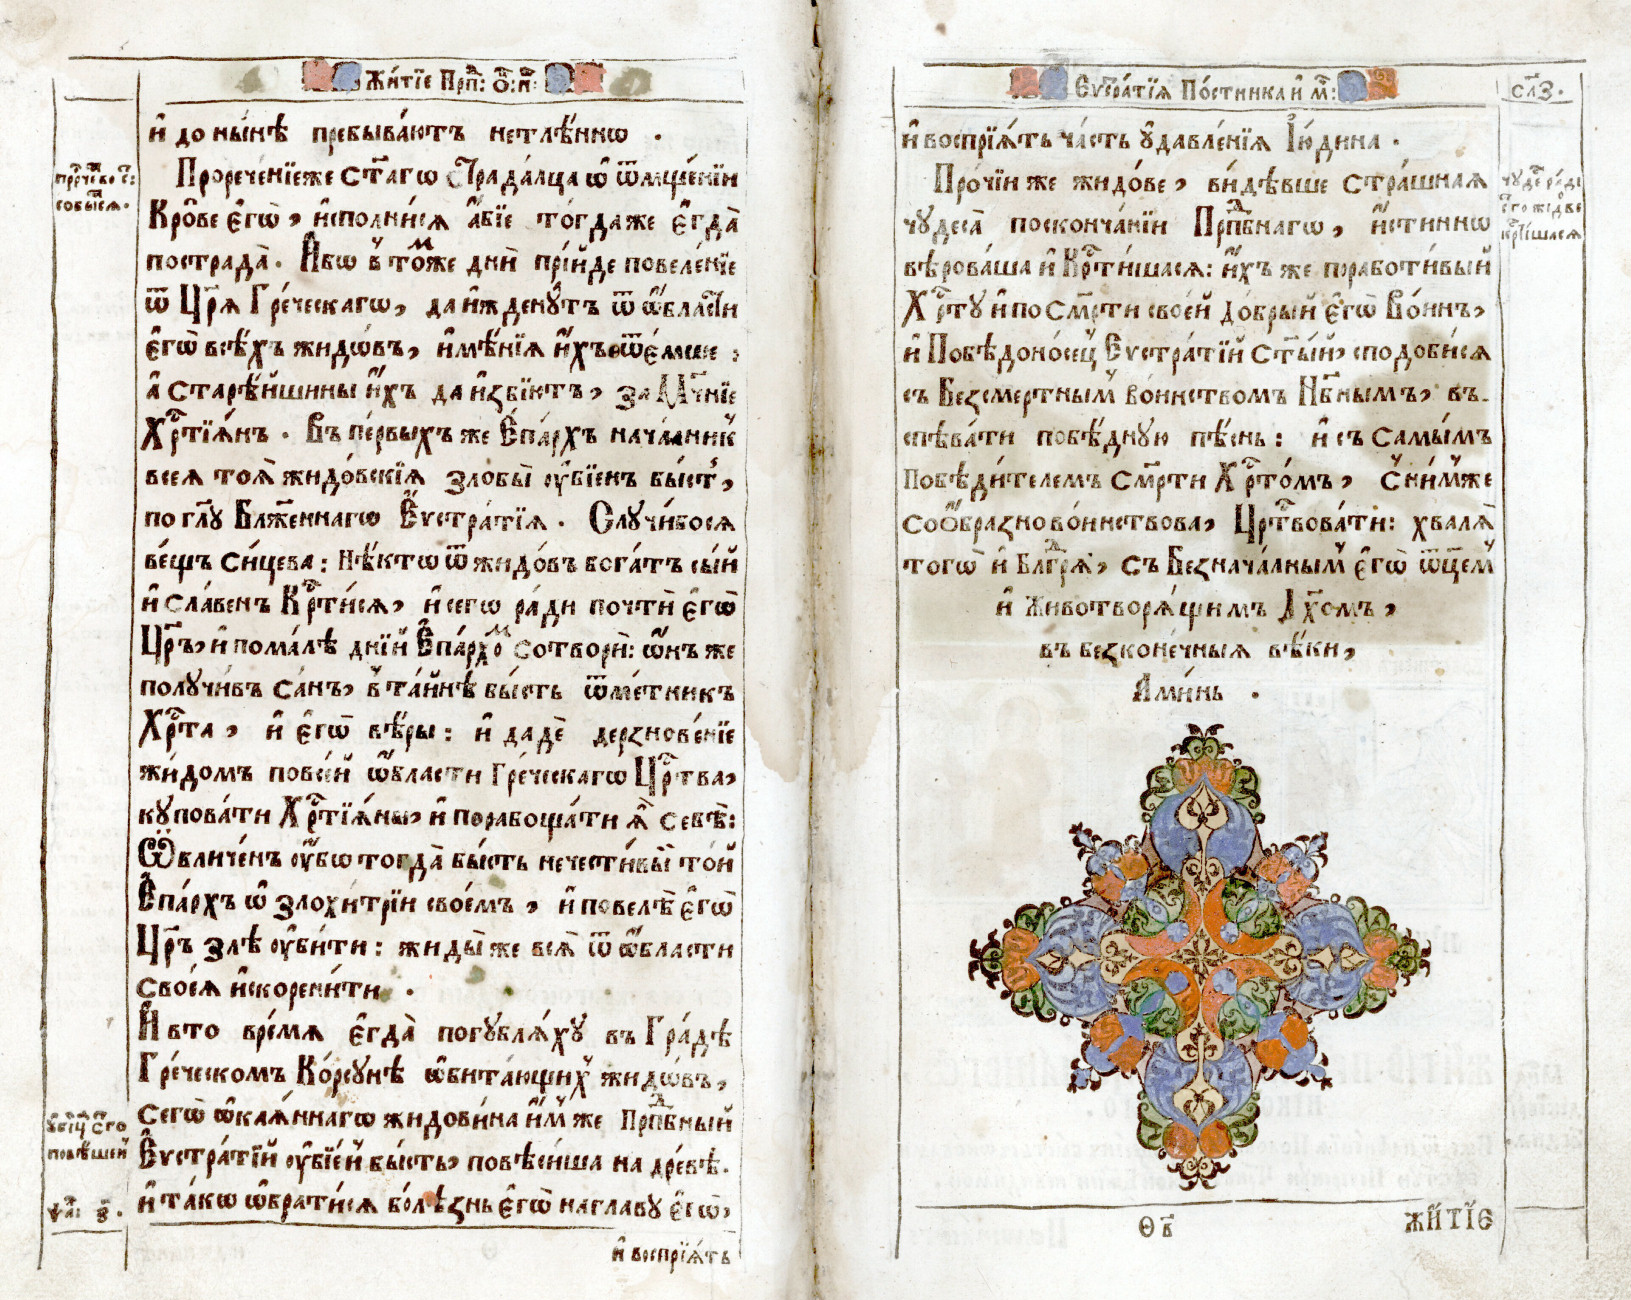 Житїе Прпⷣ: Ѻ҃: н҃:
и҆ до ны́нѣ пребыва́ютъ нетлѣ́ннѡ .
Проречéнїеже Ст҃агѡ Страда́лца ѡ҆ ѿмщéнїи
Кро́ве є҆гѡ̀, и҆сполни́ся а҆́бїе тогда́же є҆гда̀
пострада̀. И҆́бѡ в̾ то́мже днѝ прїи́де повелéнїе
ѿ Цр҃я̀ Грéческагѡ, да и҆жденꙋ́тъ ѿ ѡ҆́бласти
є҆гѡ̀ всѣ́хъ жидѡ́въ, и҆мѣ́нїя и҆́хъ ѿéмше :
а҆ старѣ́йшины и҆́хъ да и҆збїю́тъ, за Мꙋчéнїе
Хрⷭ҇тїя́нъ . Въ пéрвыхъ же Є҆па́рхъ нача́лникъ
всея̀ тоя̀ жидо́вскїя злобы̀ ᲂу҆бїéнъ бы́сть,
по гл҃ꙋ Блжⷭ҇éннагѡ Є҆ѵстра́тїя . Слꙋчи́бося
вéщь си́цева : нѣ́ктѡ ѿ жидѡ́въ бога́тъ сы́й
и҆ сла́венъ Крⷭ҇ти́ся, и҆ сегѡ̀ ра́ди почтѐ є҆гѡ̀
Цр҃ь, и҆ пома́лѣ дні́й Є҆па́рхомъ сотворѝ : ѡ҆́нъ же
полꙋчи́въ са́нъ, в̾та́йнѣ бы́сть ѿмéтникъ
Хрⷭ҇та̀, и҆ є҆гѡ̀ вѣ́ры : и҆ дадѐ дерзновéнїе
жи́домъ повсéй ѡ҆́бласти Грéческагѡ Црⷭ҇тва,
кꙋпова́ти Хрⷭ҇тїя́ны, и҆ порабоща́ти я҆̀ себѣ̀ :
Ѡ҆бличéнъ ᲂу҆́бѡ тогда̀ бы́сть нечести́вый то́й
Є҆па́рхъ ѡ҆ злохи́трїи своéмъ, и҆ повелѣ̀ є҆гѡ̀
Цр҃ь злѣ̀ ᲂу҆би́ти : жиды́ же вся̀ ѿ ѡ҆́бласти
своея̀ и҆скорени́ти .
И҆ въто врéмя є҆гда̀ погꙋбля́хꙋ въ Гра́дѣ
Грéческомъ Ко́рсꙋнѣ ѡ҆бита́ющихъ жидѡ́въ,
сегѡ̀ ѡ҆кая́ннагѡ жидови́на и҆́мже Прпⷣбный
Є҆ѵстра́тїй ᲂу҆бїéнъ бы́сть, повѣ́сиша на дрéвѣ.
и҆ та́кѡ ѡ҆брати́ся болѣ́знь є҆гѡ̀ на главꙋ̀ є҆гѡ̀,
и҆ воспрїя́тъ
собы́ся.
повѣ́шенъ
Є҆ѵстра́тїя По́стника и҆ м҃:
сл҃з.
и҆ воспрїя́тъ ча́сть ᲂу҆давлéнїя І҆ю́дина .
Про́чїи же жидо́ве, ви́дѣвше стра́шная
чꙋдеса̀ посконча́нїи Прпⷣбнагѡ, и҆́стиннѡ
вѣ́роваша и҆ Крⷭ҇ти́шася : и҆́хъ же порабо́тивый
Хрⷭ҇тꙋ̀ и҆ по Смр҃ти своéй до́брый є҆гѡ̀ Во́инъ,
и҆ Побѣдоно́сецъ Є҆ѵстра́тїй Ст҃ы́й, сподоби́ся
съ Безсмéртнымъ во́инствомъ Нбⷭ҇нымъ, въ-
спѣва́ти побѣ́днꙋю пѣ́снь : и҆ съ Самы́мъ
Побѣди́телемъ Смр҃ти Хрⷭ҇то́мъ, С̾ни́мже
соѻ҆бра́зно во́инствова, Црⷭ҇твова́ти : хваля̀
тогѡ̀ и҆ Блгⷣря̀, съ Безнача́лнымъ є҆гѡ̀ ѿц҃éмъ
и҆ Животворя́щимъ Дх҃омъ,
въ безконéчныя вѣ́ки,
Ами́нь .
чꙋдéсъ ра́ди
є҆гѡ̀ жідо́ве
крⷭ҇ти́шася
Ѳв҃
Житїе